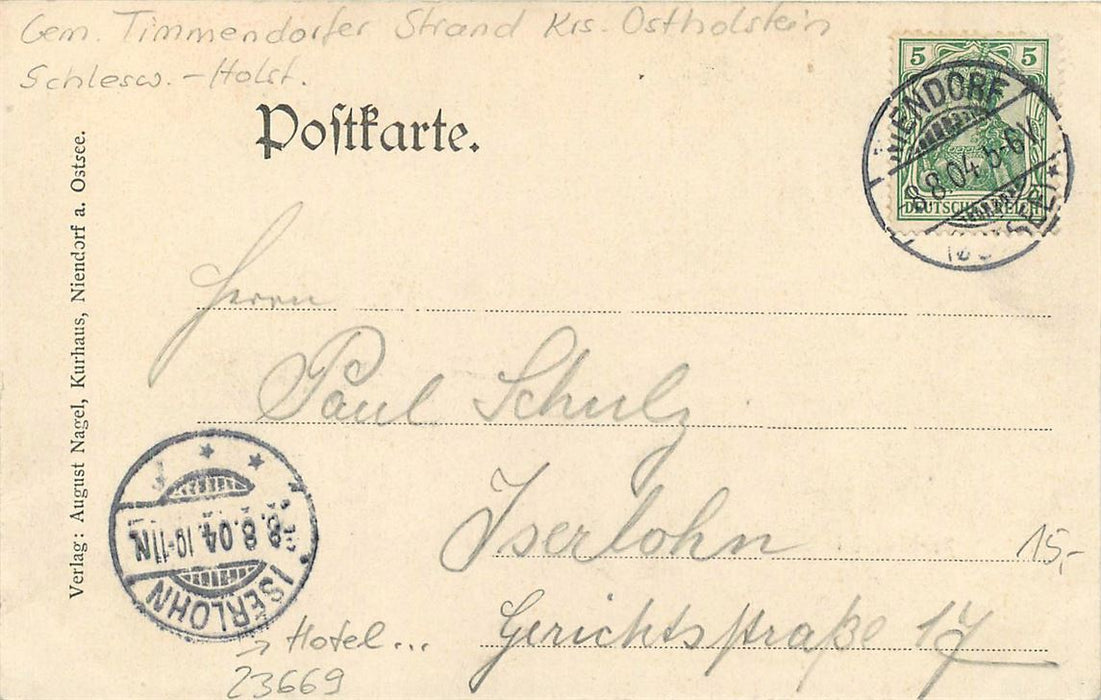 Gem. Timmendorfer Strand Krs. Ostholstein
Schlesw.-Holst.
Postkarte.
5 5
DEUTSCHES REICH
NIENDORF
8.8.04 5-6N
(OSTSEE) *
Verlag: August Nagel, Kurhaus, Niendorf a. Ostsee.
Herrn
Paul Schulz
Iserlohn
Gerichtsstraße 17
15,-
ISERLOHN
8.8.04.10-11N.
→ Hotel...
23669